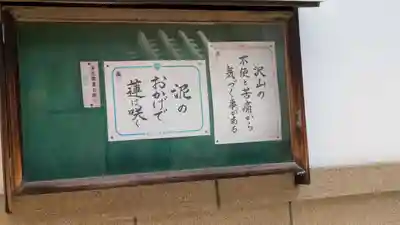 沢山の
不便と苦痛から
気づく事がある
泥の
おかげで
蓮は咲く